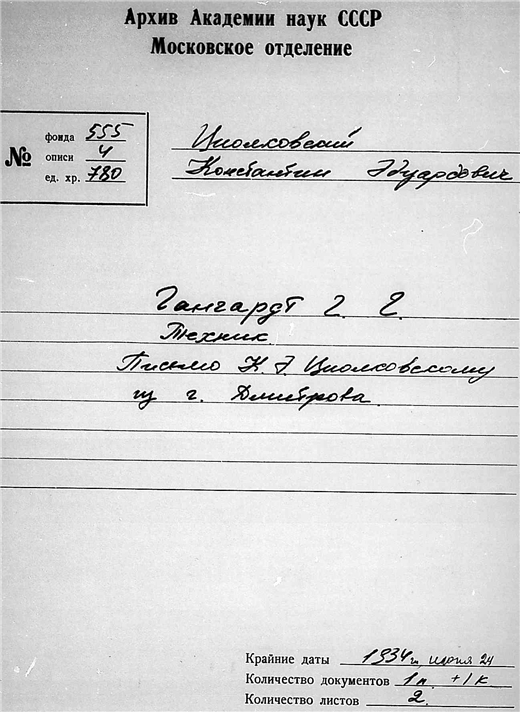 Архив Академии наук СССР
Московское отделение
№
фонда 555
описи 4
ед. хр. 780
Циолковский
Константин Эдуардович
Гангардт Г. Е.
Техник
Письмо К. Э. Циолковскому
из г. Дмитрова
Крайние даты 1934 г., 24
Количество документов 1 п. + 1 к
Количество листов 2.